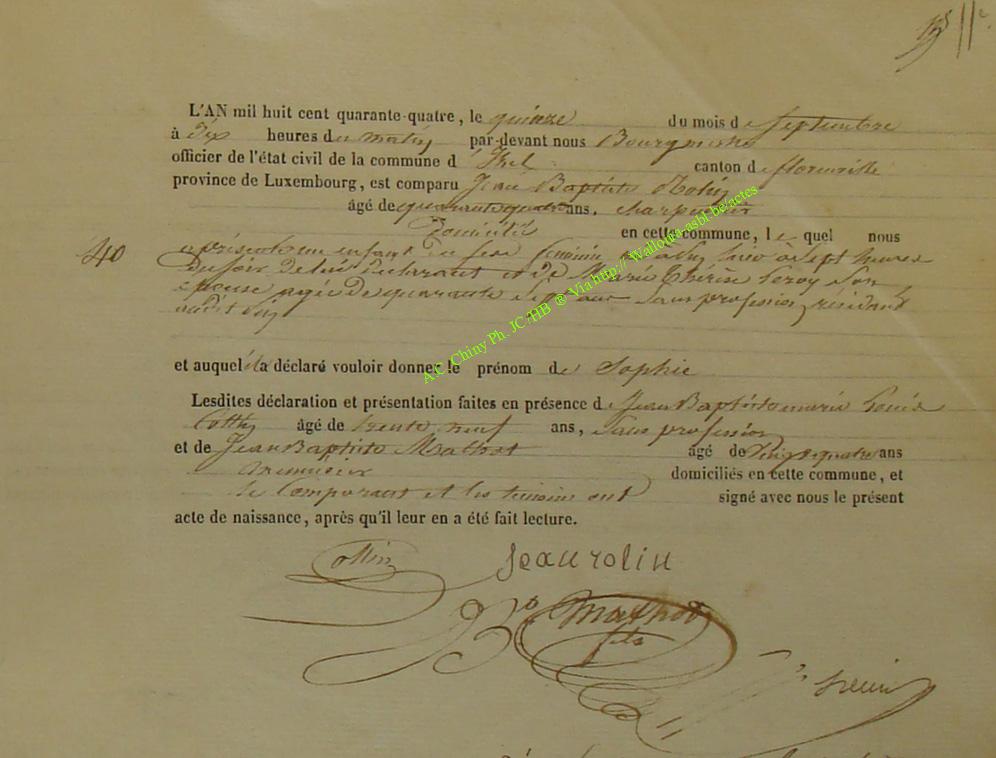 L'AN mil huit cent quarante-quatre, le quinze du mois de Septembre
à dix heures du matin par-devant nous Bourgmestre
officier de l'état civil de la commune d'Izel canton de florenville
province de Luxembourg, est comparu Jean Baptiste Rolin
âgé de quarante quatre ans, charpentier
Domicilié en cette commune, le quel nous
40 a présenté un enfant du sexe féminin né à hier à sept heures
du soir de lui declarant et de Marie Thérèse Leroy Son
epouse agée de quarante ans Sans profession, résidant
audit
et auquel il a déclaré vouloir donner le prénom de Sophie
Lesdites déclaration et présentation faites en présence de Jean Baptiste marie Louis
Collin âgé de trente neuf ans, Sans profession
et de Jean Baptiste Mathot âgé de vingt quatre ans
menuisier domiciliés en cette commune, et
le Comparant et les témoins ont signé avec nous le présent
acte de naissance, après qu'il leur en a été fait lecture.
Collin Jean rolin
Mathot
fils
A.C. Chiny Ph. JC/HB ® Via http:// Wallonia-asbl-be/actes